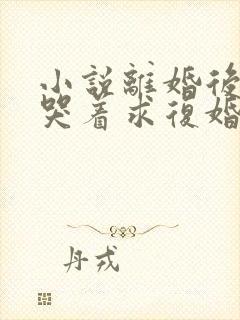 小説離婚後
哭着求復婚
丹戎